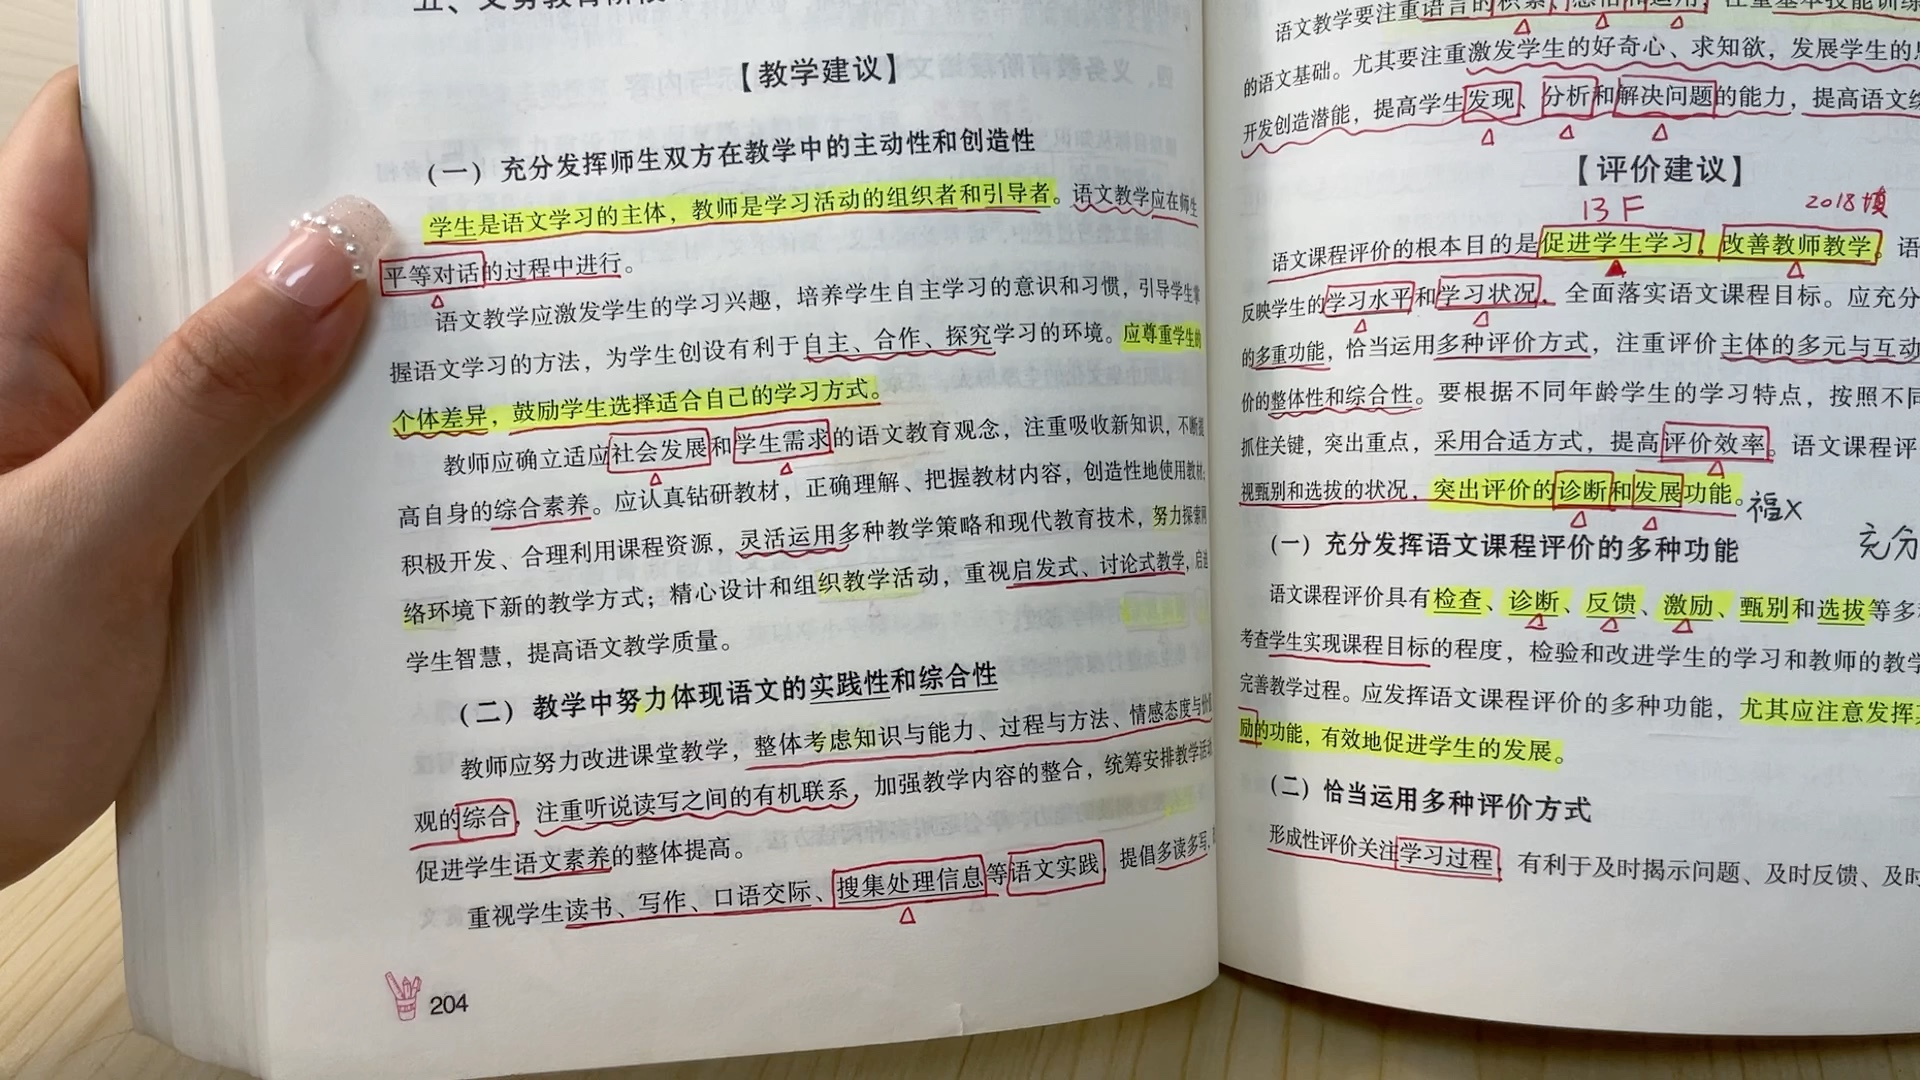 五、义务教育阶段
【教学建议】
（一）充分发挥师生双方在教学中的主动性和创造性
学生是语文学习的主体，教师是学习活动的组织者和引导者。语文教学应在师生
平等对话的过程中进行。
语文教学应激发学生的学习兴趣，培养学生自主学习的意识和习惯，引导学生掌
握语文学习的方法，为学生创设有利于自主、合作、探究学习的环境。应尊重学生的
个体差异，鼓励学生选择适合自己的学习方式。
教师应确立适应社会发展和学生需求的语文教育观念，注重吸收新知识，不断提
高自身的综合素养。应认真钻研教材，正确理解、把握教材内容，创造性地使用教材；
积极开发、合理利用课程资源，灵活运用多种教学策略和现代教育技术，努力探索网
络环境下新的教学方式；精心设计和组织教学活动，重视启发式、讨论式教学，启迪
学生智慧，提高语文教学质量。
（二）教学中努力体现语文的实践性和综合性
教师应努力改进课堂教学，整体考虑知识与能力、过程与方法、情感态度与价值
观的综合，注重听说读写之间的有机联系，加强教学内容的整合，统筹安排教学活动，
促进学生语文素养的整体提高。
重视学生读书、写作、口语交际、搜集处理信息等语文实践，提倡多读多写，
204
语文教学要注重语言的积累、感悟和运用，注重基本技能训练
的语文基础。尤其要注重激发学生的好奇心、求知欲，发展学生的思
开发创造潜能，提高学生发现、分析和解决问题的能力，提高语文综
【评价建议】
13 F
2018填
语文课程评价的根本目的是促进学生学习，改善教师教学。语
反映学生的学习水平和学习状况，全面落实语文课程目标。应充分
的多重功能，恰当运用多种评价方式，注重评价主体的多元与互动
价的整体性和综合性。要根据不同年龄学生的学习特点，按照不同
抓住关键，突出重点，采用合适方式，提高评价效率。语文课程评
视甄别和选拔的状况，突出评价的诊断和发展功能。
福X
（一）充分发挥语文课程评价的多种功能
充分
语文课程评价具有检查、诊断、反馈、激励、甄别和选拔等多
考查学生实现课程目标的程度，检验和改进学生的学习和教师的教学
完善教学过程。应发挥语文课程评价的多种功能，尤其应注意发挥其
励的功能，有效地促进学生的发展。
（二）恰当运用多种评价方式
形成性评价关注学习过程，有利于及时揭示问题、及时反馈、及时